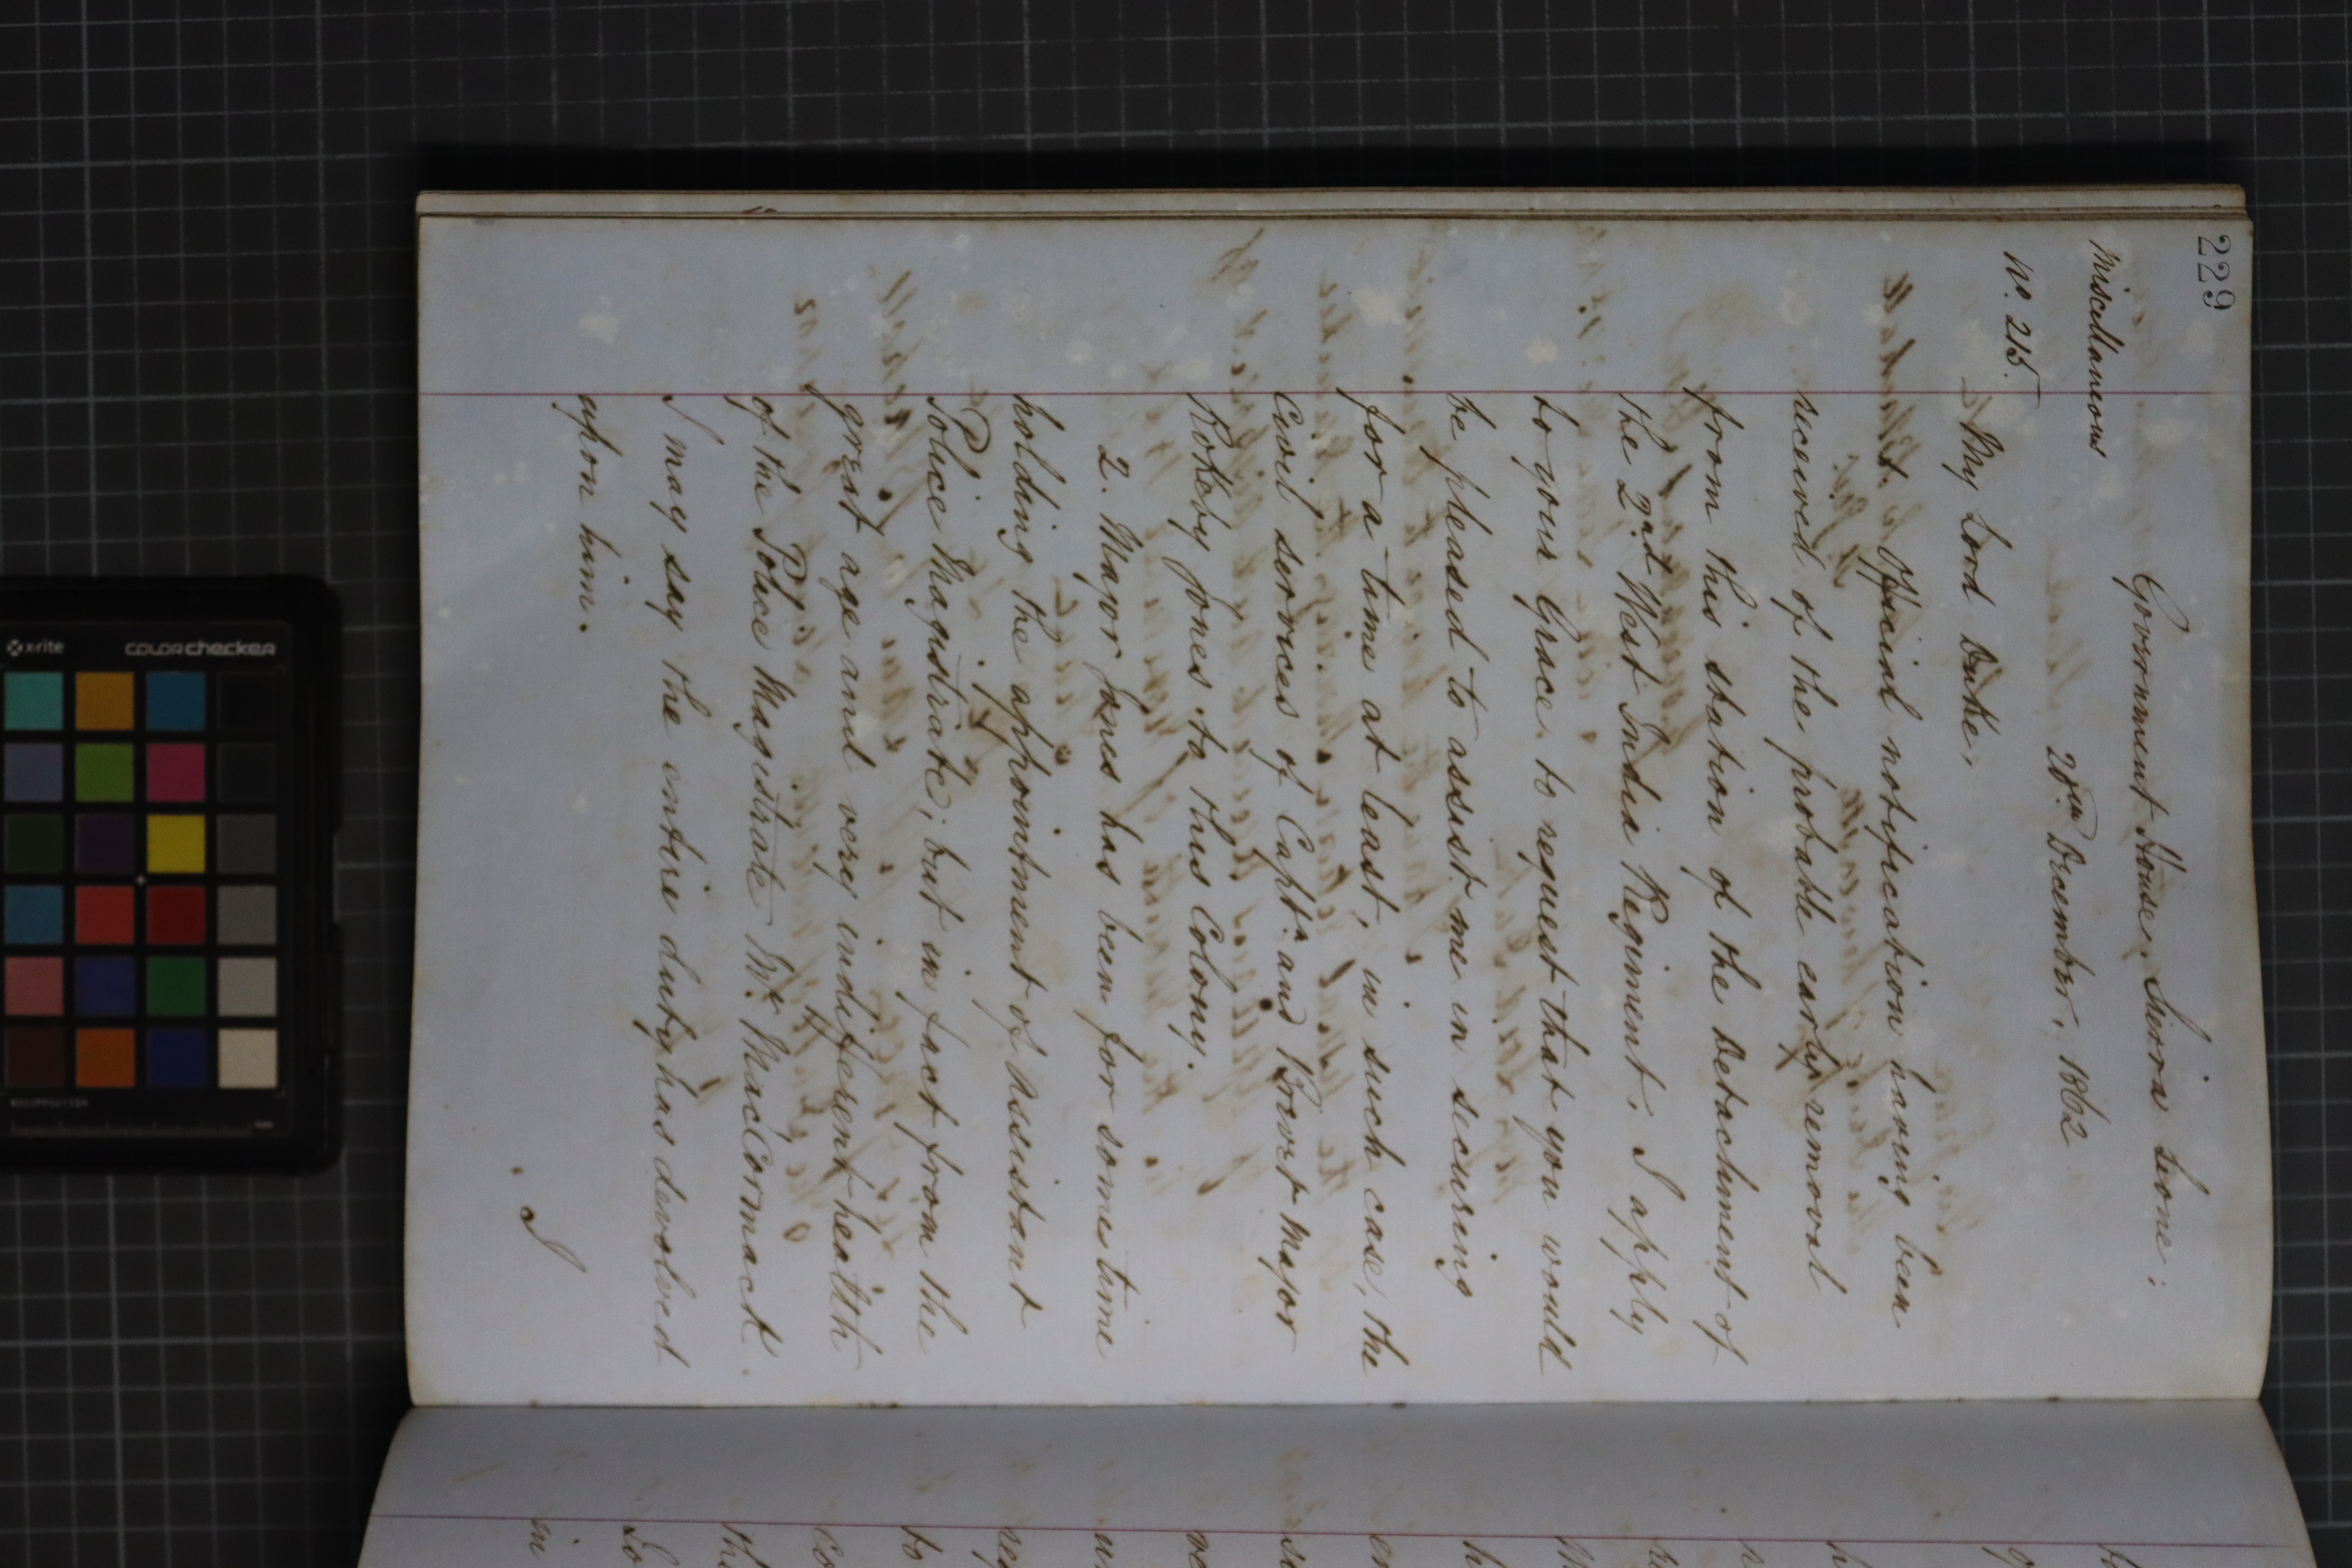 229
Government House, Sierra Leone;
Miscellaneous
20th December, 1862
No. 215.
My Lord Duke,
1. Official notification having been
received of the probable early removal
from this station of the Detachment of
the 2nd West India Regiment, I apply
to your Grace to request that you would
be pleased to assist me in securing
for a time at least, in such case, the
Civil services of Captn. and Brevet Major
Rokeby Jones to this Colony.
2. Major Jones has been for some time
holding the appointment of Assistant
Police Magistrate; but in fact from the
great age and very indifferent health
of the Police Magistrate Mr. MacCormack.
I may say the entire duty has devolved
upon him.
I
x-rite
COLORchecker